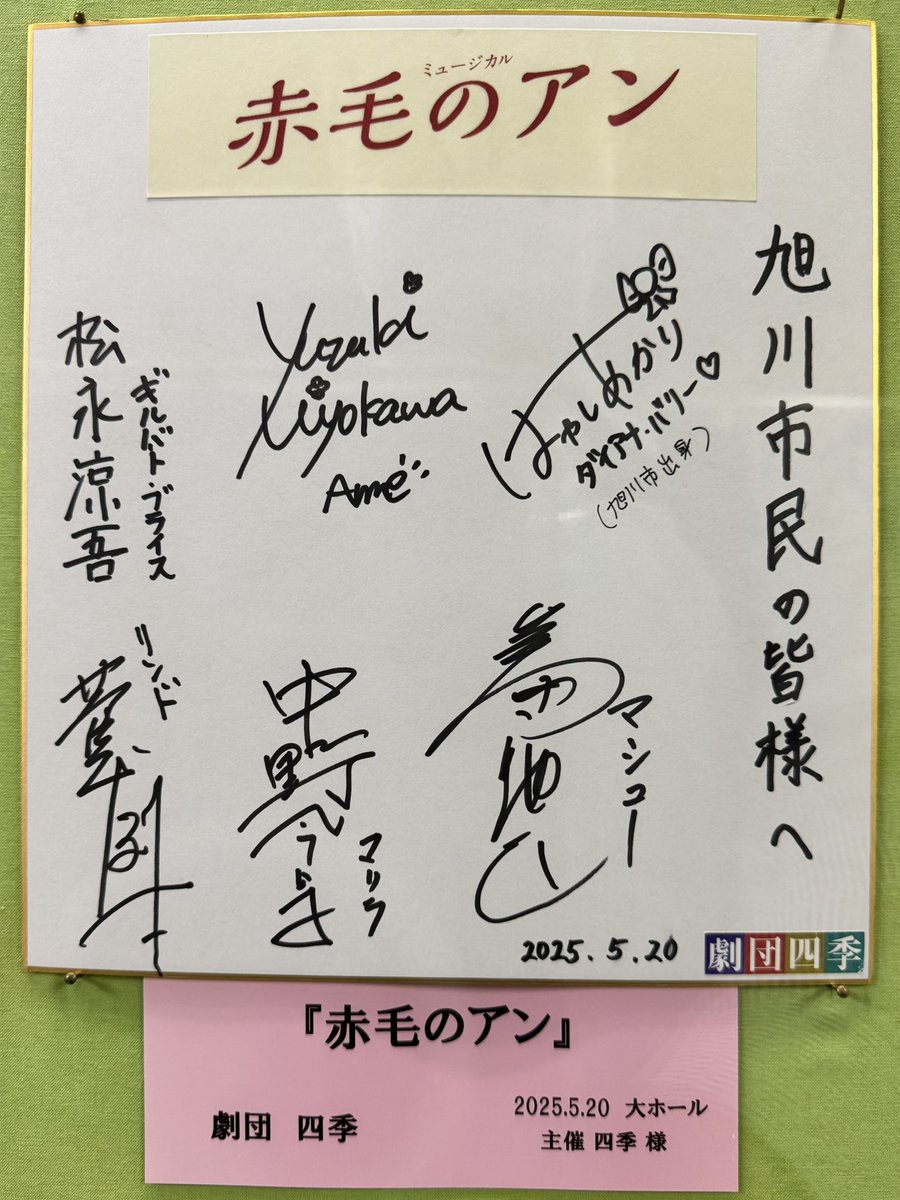 ミュージカル
赤毛のアン
旭川市民の皆様へ
はやしめかり
ダイアナ・バリー♡
(旭川市出身)
Yuzuki
Miyokawa
Anne
ギルバート・ブライス
松永涼吾
マシュー
菊池
マリラ
中野今日子
リンド
2025.5.20
劇団四季
『赤毛のアン』
劇団 四季
2025.5.20 大ホール
主催 四季 様